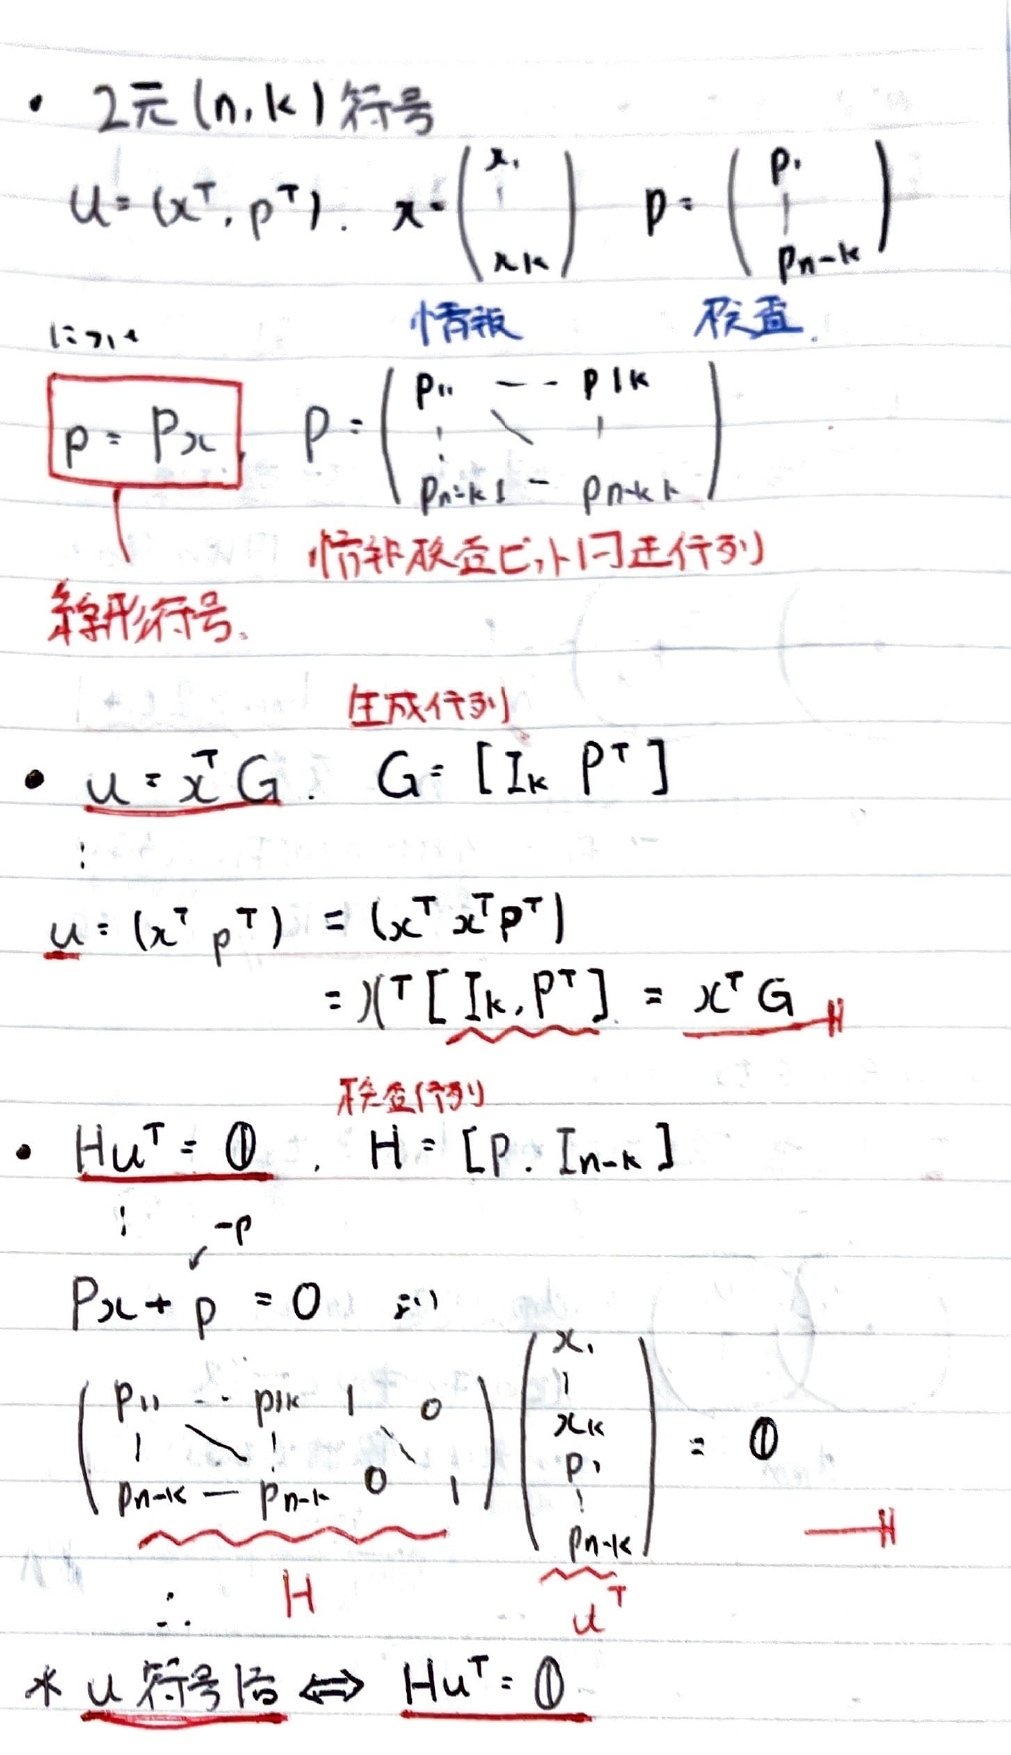 ・ 2元(n,k)符号
u=(xᵀ, pᵀ). x=(x₁ ⋮ xk) p=(p₁ ⋮ pn-k)
情報 検査.
について
p = Px, P=(p₁₁ -- p1k ⋮ ⋱ ⋮ pn-k1 - pn-kk)
情報検査ビット関連行列
線形符号.
生成行列
・ u = xᵀG. G = [Ik Pᵀ]
⋮
u = (xᵀ pᵀ) = (xᵀ xᵀPᵀ)
= xᵀ[Ik, Pᵀ] = xᵀG
検査行列
・ Huᵀ = 𝟘. H = [P. In-k]
⋮ -p
Px + p = 0 より
(p11 -- p1k 1 0 ⋮ ⋱ ⋮ ⋱ pn-k — pn-k 0 1)(x₁ ⋮ xk p₁ ⋮ pn-k) = 𝟘
H uᵀ
∴
* u 符号語 ⇔ Huᵀ = 𝟘